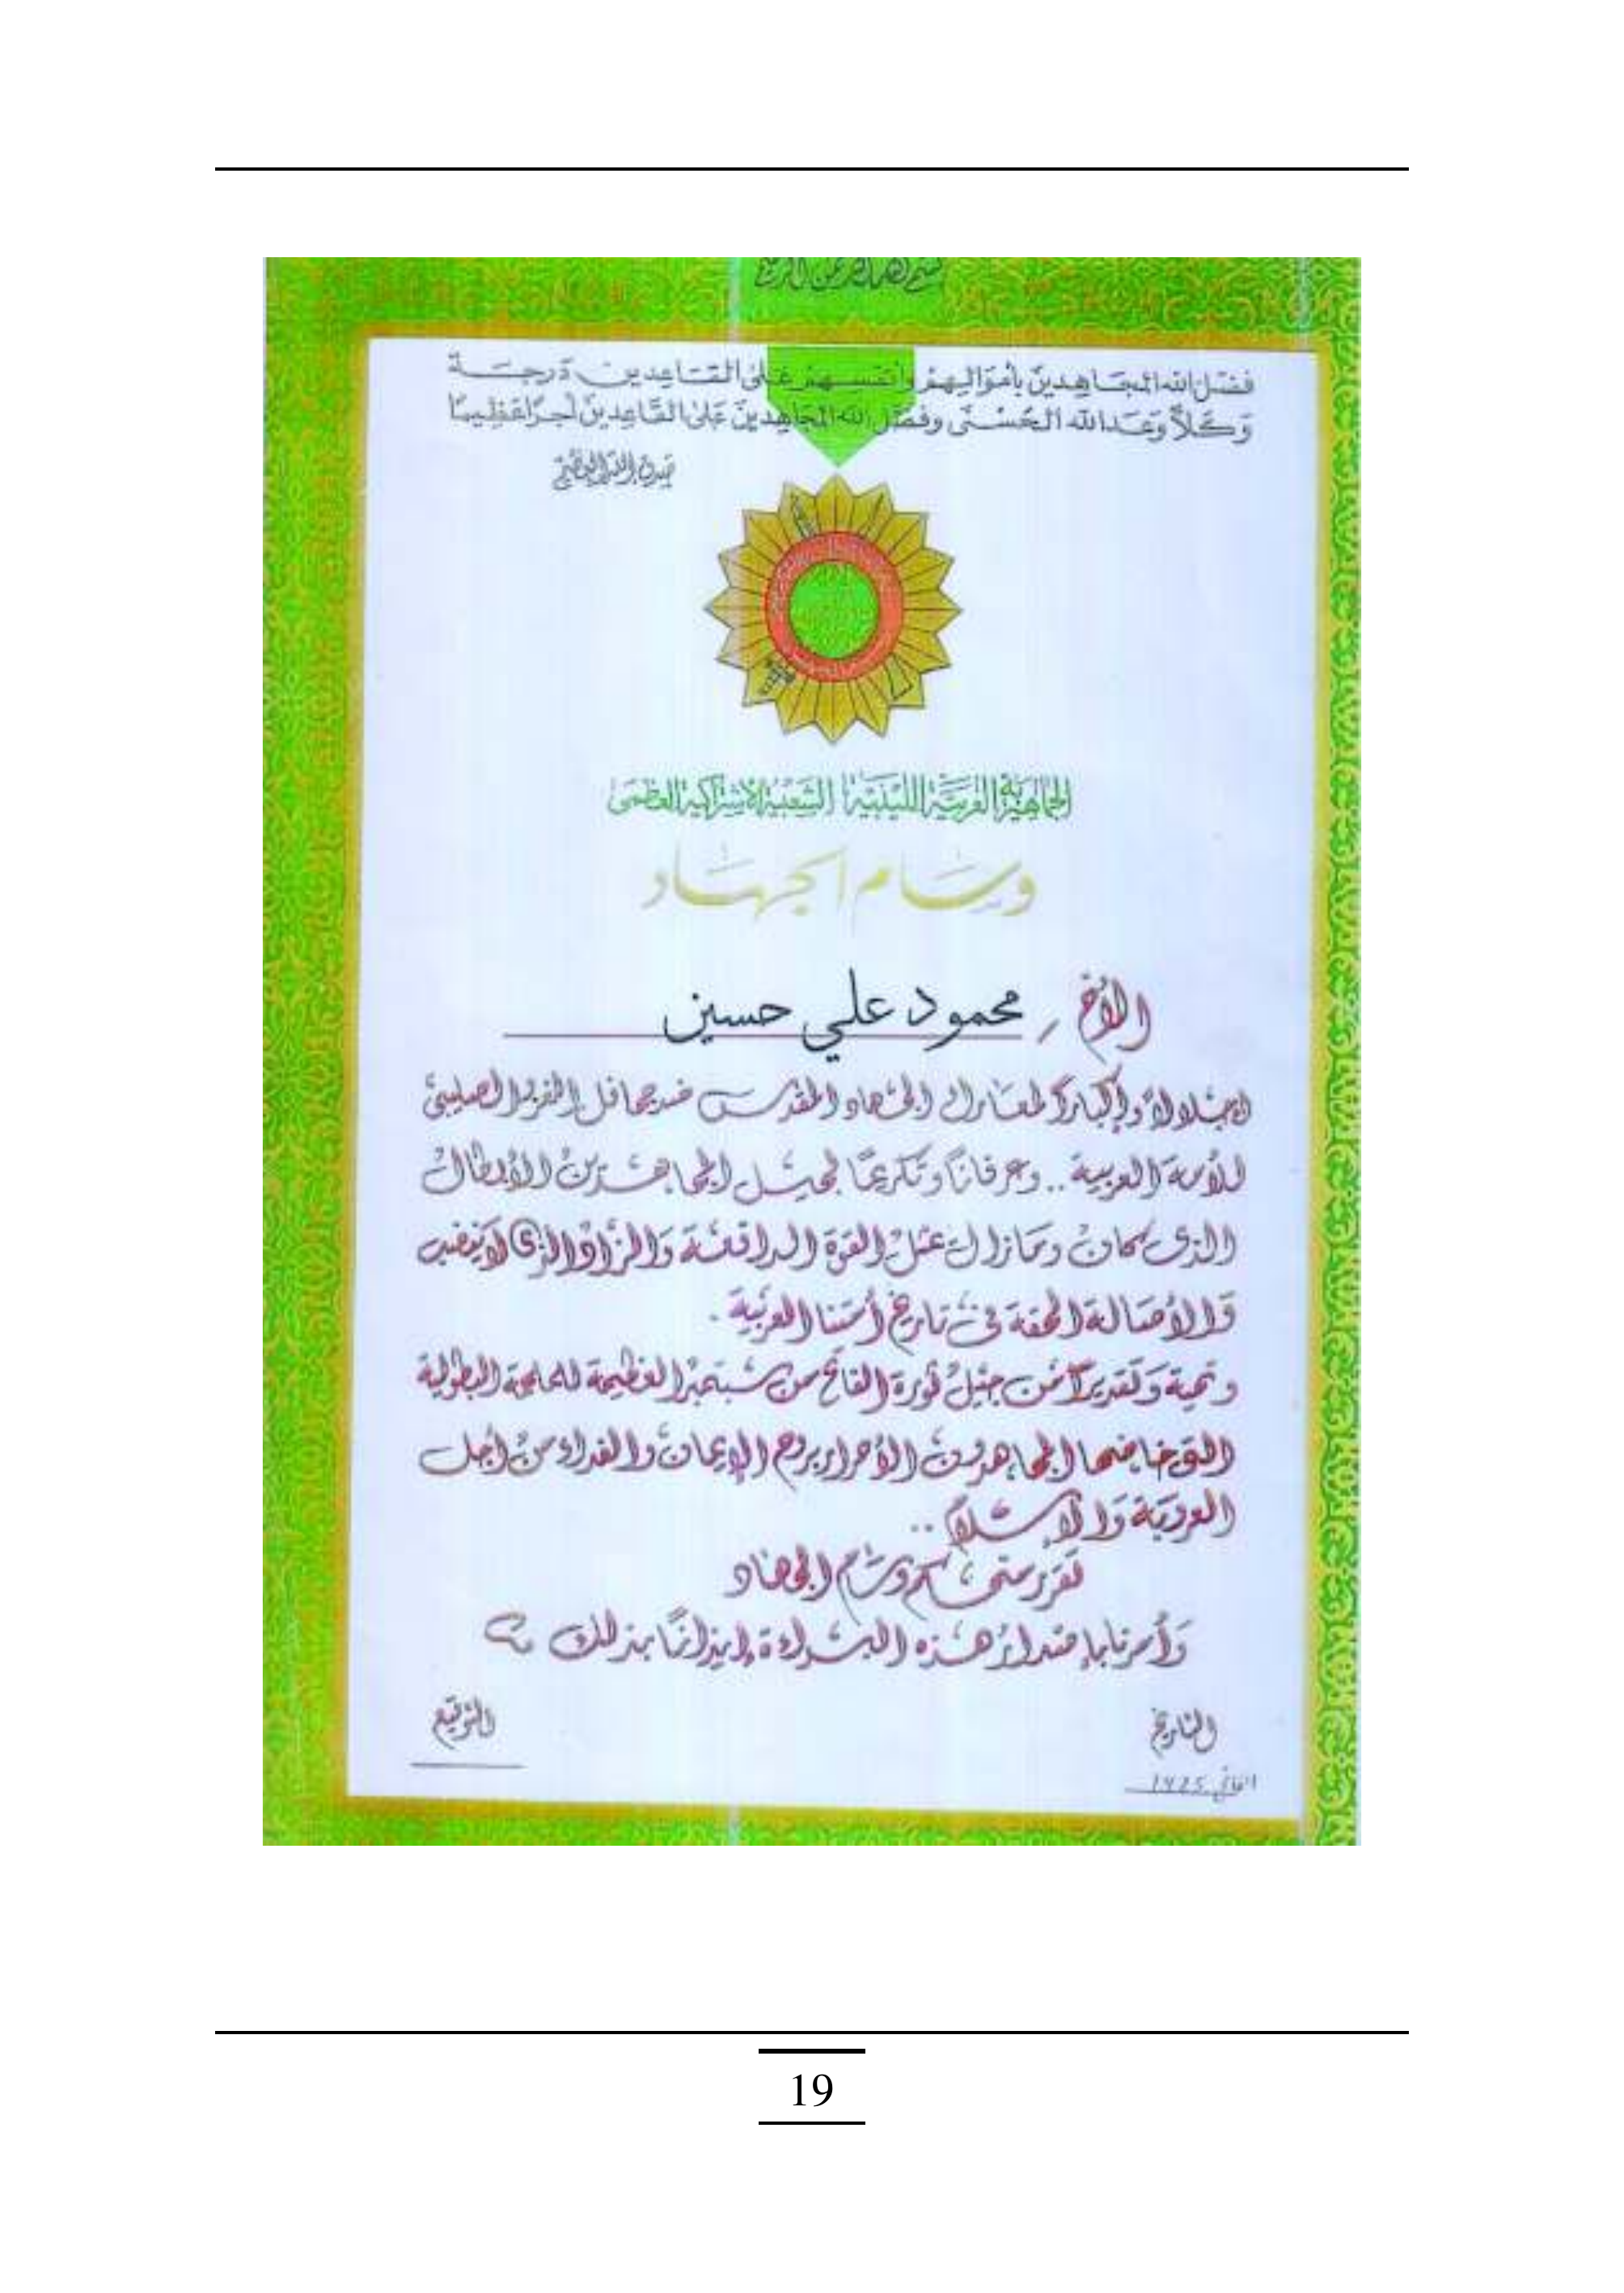 بسم الله الرحمن الرحيم
فضّل الله المجاهدين بأموالهم وأنفسهم على القاعدين درجة
وَكلاًّ وَعَد الله الحُسْنى وفضّل الله المجاهدين عَلى القَاعِدينَ أجرًا عَظيمًا
صدق الله العظيم
الجماهيرية العربية الليبية الشعبية الاشتراكية العظمى
وسام الجهاد
الأخ / محمود علي حسين
إجلالاً وإكبارًا لمعارك الجهاد المقدس ضد جحافل الغزو الصليبي
للأمة العربية .. وعرفانًا وتكريمًا لجيل المجاهدين الأبطال
الذي كان ومازال يمثل القوة الدافعة والزاد الذي لا ينضب
والأصالة الحقة في تاريخ أمتنا العربية .
وتحية وتقديرًا من جيل ثورة الفاتح من سبتمبر العظيمة للملحمة البطولية
التي خاضها المجاهدون الأحرار بروح الإيمان والفداء من أجل
العروبة والإسلام ..
نقرر منحكم وسام الجهاد
وأمرنا بإصدار هذه البراءة إيذانًا بذلك
التاريخ
التوقيع
الفاتح 1425
19